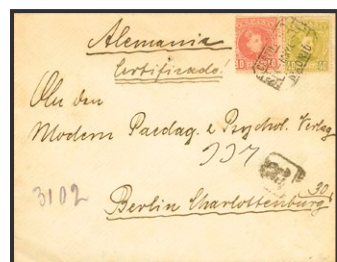 Alemania
Certificado.
An den
Modern Paedag. & Psychol. Verlag
337
3102
30
Berlin Charlottenburg